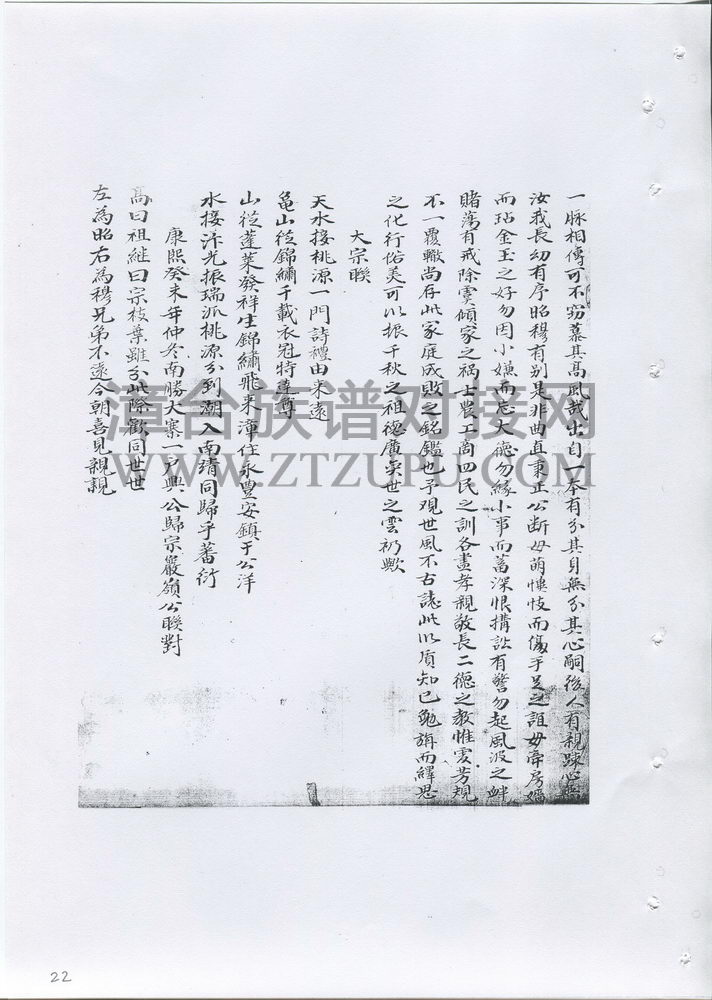 一脉相傳可不窃慕其髙風哉出自一本有分其身無分其心嗣後人有親踈心無
汝我長幼有序昭穆有别是非曲直秉正公断毋萌懻忮而傷手足之誼毋帝房婚
而玷金玉之好勿因小嫌而忘大德勿緣小事而蓄深恨搆訟有警勿起風波之衅
賭蕩有戒除雯傾家之禍士農工商四民之訓各盡孝親敬長二德之教惟雯芳規
不一覆轍尚存此家庭成敗之銘鑑也予观世風不古誌此以质知已勉旃而繹思
之化行俗美可以振千秋之祖德廣奕世之雲礽歟
大宗聨
天水接桃源一門詩禮由来遠
龟山從錦繡千載衣冠特達尊
山從蓬莱發祥生錦繡飛来漳住永豊安鎮于公洋
水接汴光振瑞派桃源分到潮入南靖同歸乎蕃衍
康熙癸未年仲冬南勝大寨一永興公歸宗巖嶺公聨對
髙曰祖継曰宗枝葉雖分此際歡同世世
左為昭右為穆兄弟不遠今朝喜見親親
漳台族谱对接网
WWW.ZTZUPU.COM
22